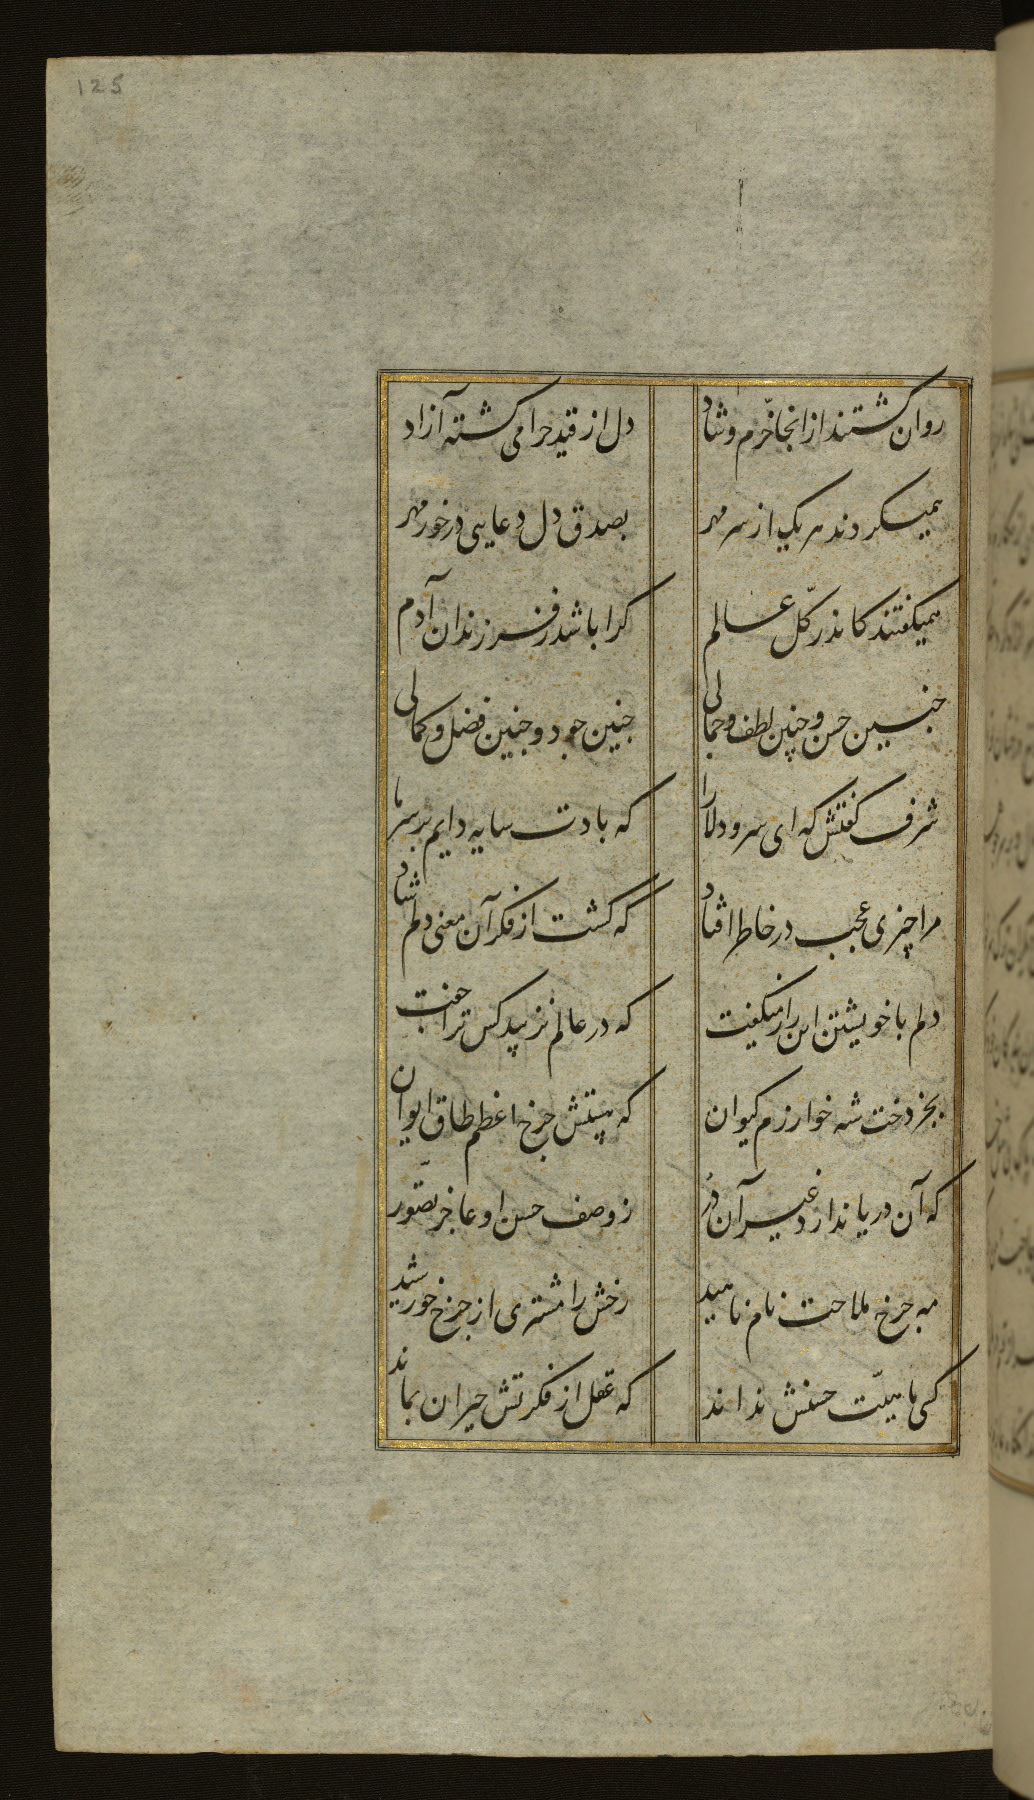 125
روان گشتند از انجا خرّم و شاد
دل از قید حرامی گشته آزاد
همیکردند هر یک از سر مهر
بصدق دل دعایی در خور مهر
همیکفتند کاندر کل عالم
کرا باشد ز فرزندان آدم
چنین حسن و چنین لطف و جمالی
چنین جود و چنین فضل و کمالی
شرف کفتش که ای سرو دلارا
که بادت سایه دایم بر سر ما
مرا چیزی عجب در خاطر افتاد
که کشت از فکر آن معنی دلم شاد
دلم با خویشتن این راز میکفت
که در عالم نزیبد کس ترا جفت
بجز دخت شه خوارزم کیوان
که هستش چرخ اعظم طاق ایوان
که آن دریا ندارد غیر آن دُر
ز وصف حسن او عاجز تصّور
مه چرخ ملاحت نام ناهید
رخش را مشتری از چرخ خورشید
کسی ماهیّت حسنش نداند
که عقل از فکرتش حیران بماند